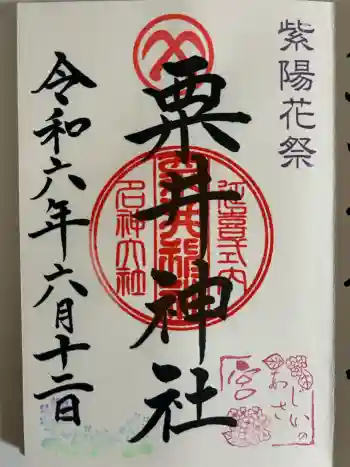 紫陽花祭
粟井神社
延喜式内
粟井神社
名神大社
令和六年六月十二日
あじさいの宮